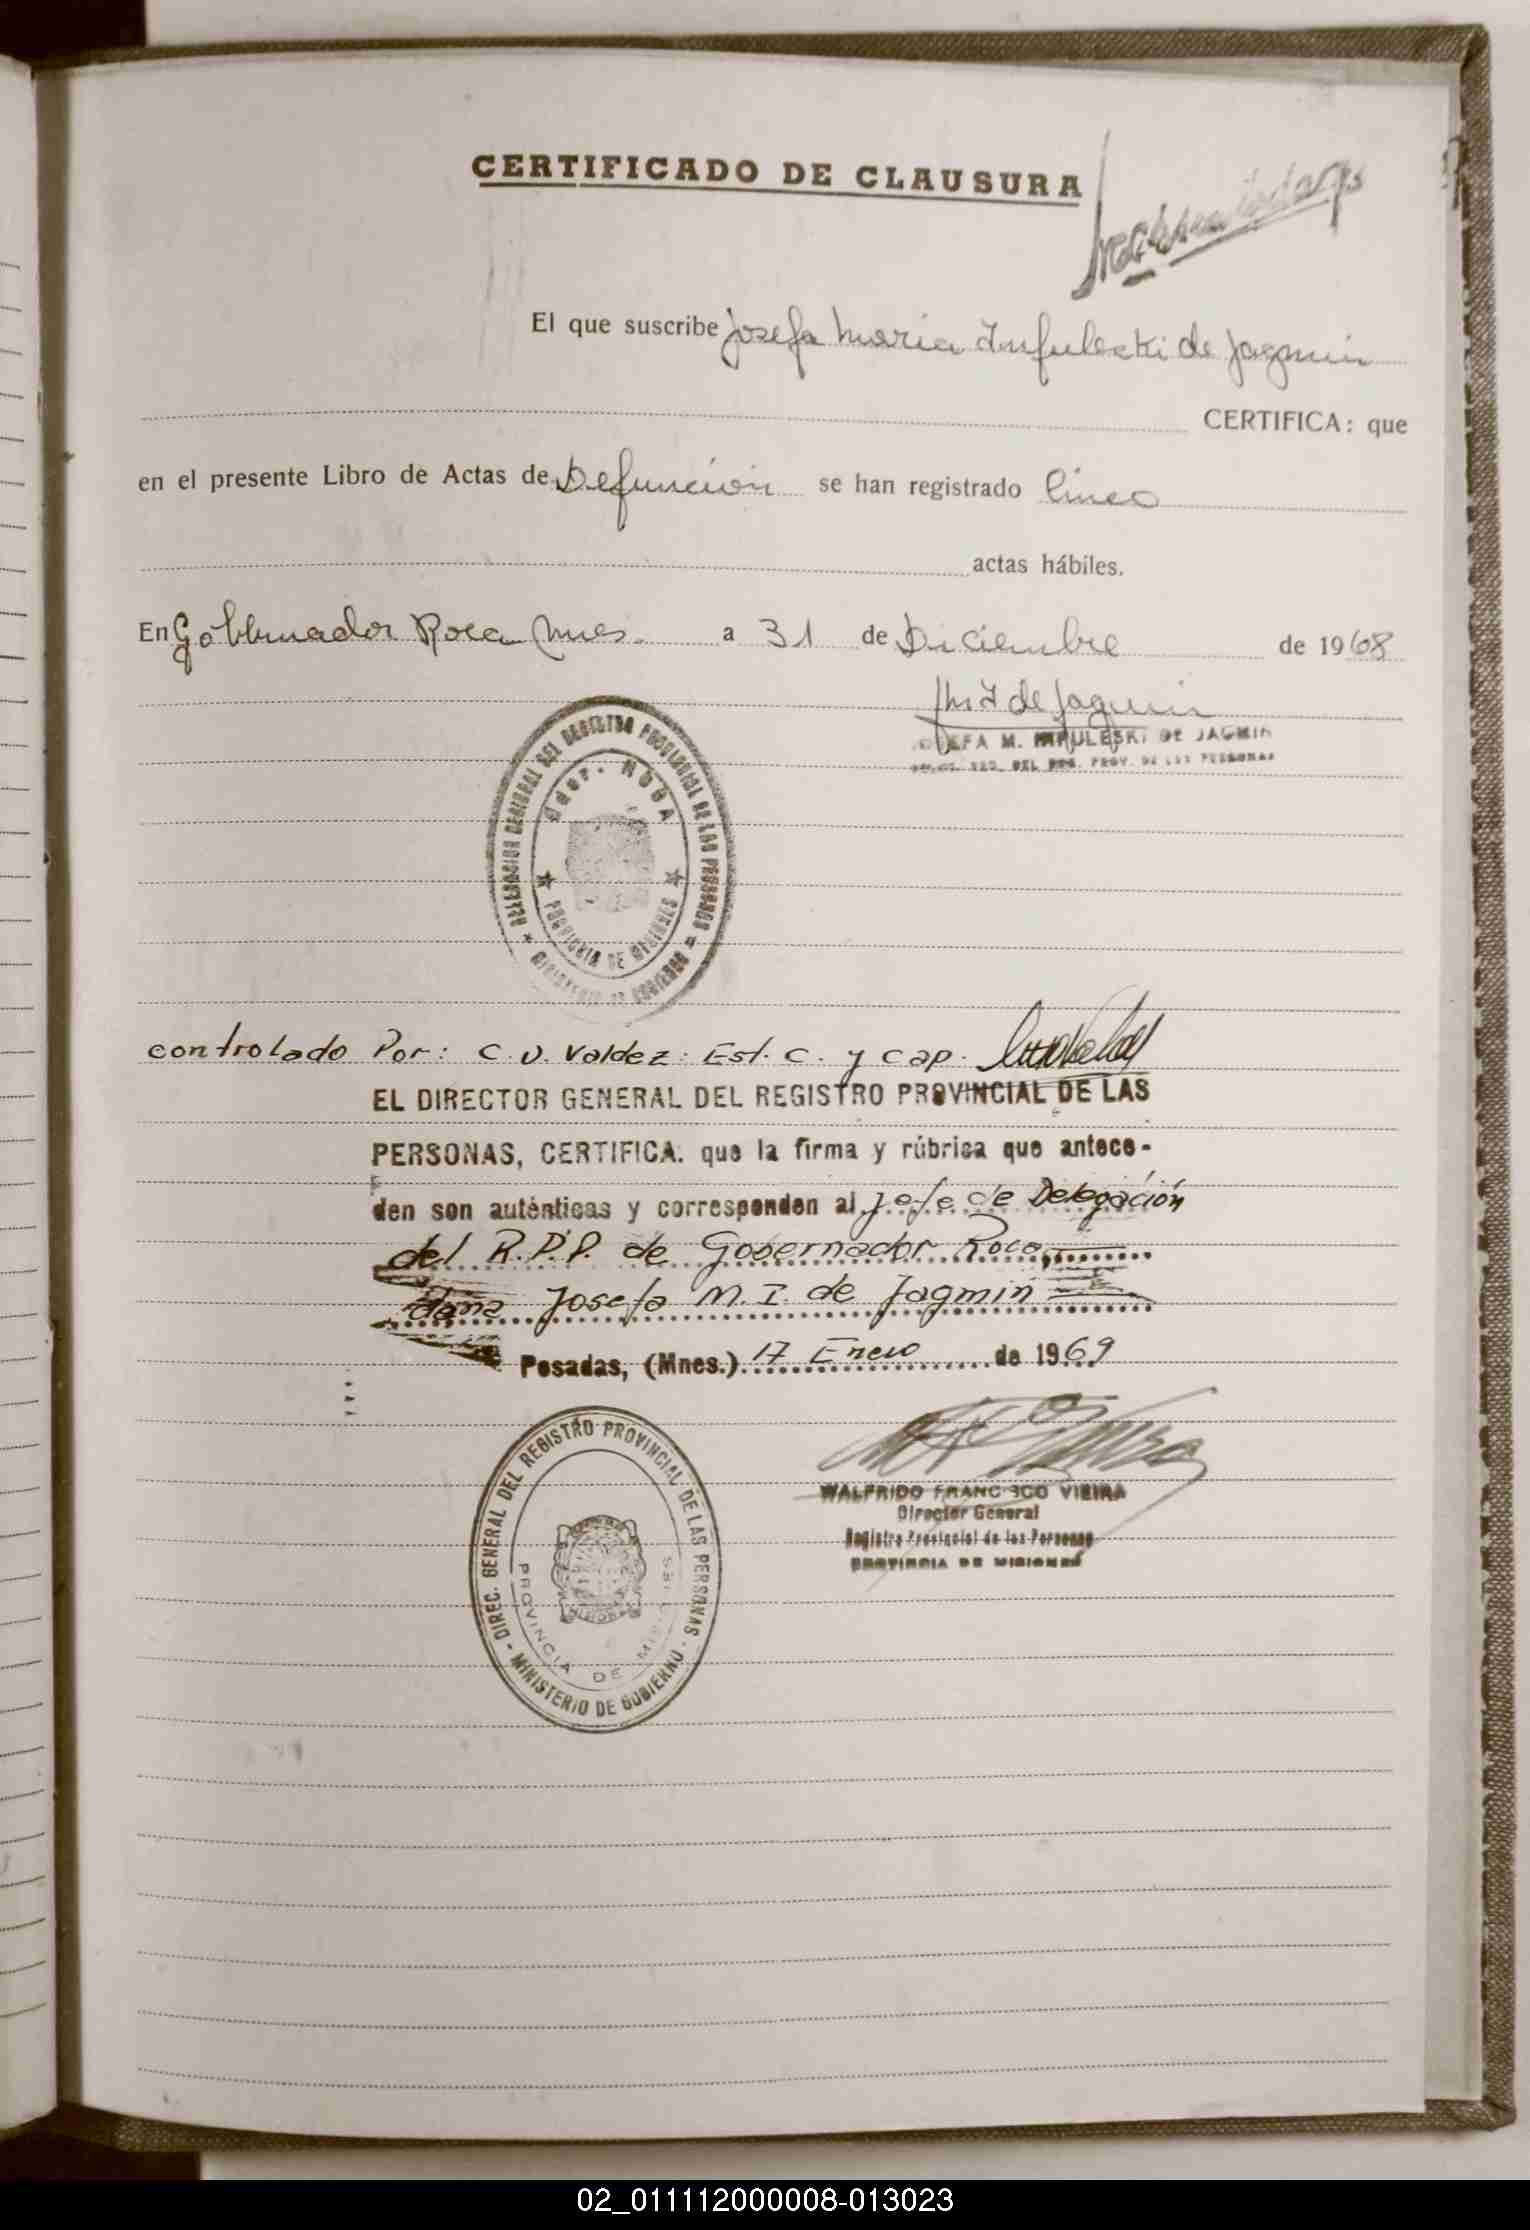 CERTIFICADO DE CLAUSURA
El que suscribe Josefa Maria Infuleski de Jagmin
CERTIFICA: que
en el presente Libro de Actas de Defunción se han registrado Cinco
actas hábiles.
En Gobernador Roca Mnes. a 31 de Diciembre de 1968
de Jagmin
JOSEFA M. INFULESKI DE JAGMIN
DEL REG. PROV. DE LAS PERSONAS
DELEGACION GENERAL DEL REGISTRO PROVINCIAL DE LAS PERSONAS
Gdor. ROCA
PROVINCIA DE MISIONES
MINISTERIO DE GOBIERNO
controlado Por: C. V. Valdez: Est. C. y Cap.
EL DIRECTOR GENERAL DEL REGISTRO PROVINCIAL DE LAS
PERSONAS, CERTIFICA. que la firma y rúbrica que antece-
den son auténticas y corresponden al Jefe de Delegación
del R.P.P. de Gobernador Roca,
doña Josefa M. I. de Jagmin
Posadas, (Mnes.) 17 Enero de 1969
WALFRIDO FRANCISCO VIEIRA
Director General
Registro Provincial de las Personas
PROVINCIA DE MISIONES
DIREC. GENERAL DEL REGISTRO PROVINCIAL DE LAS PERSONAS
PROVINCIA DE MISIONES
MINISTERIO DE GOBIERNO
02_011112000008-013023